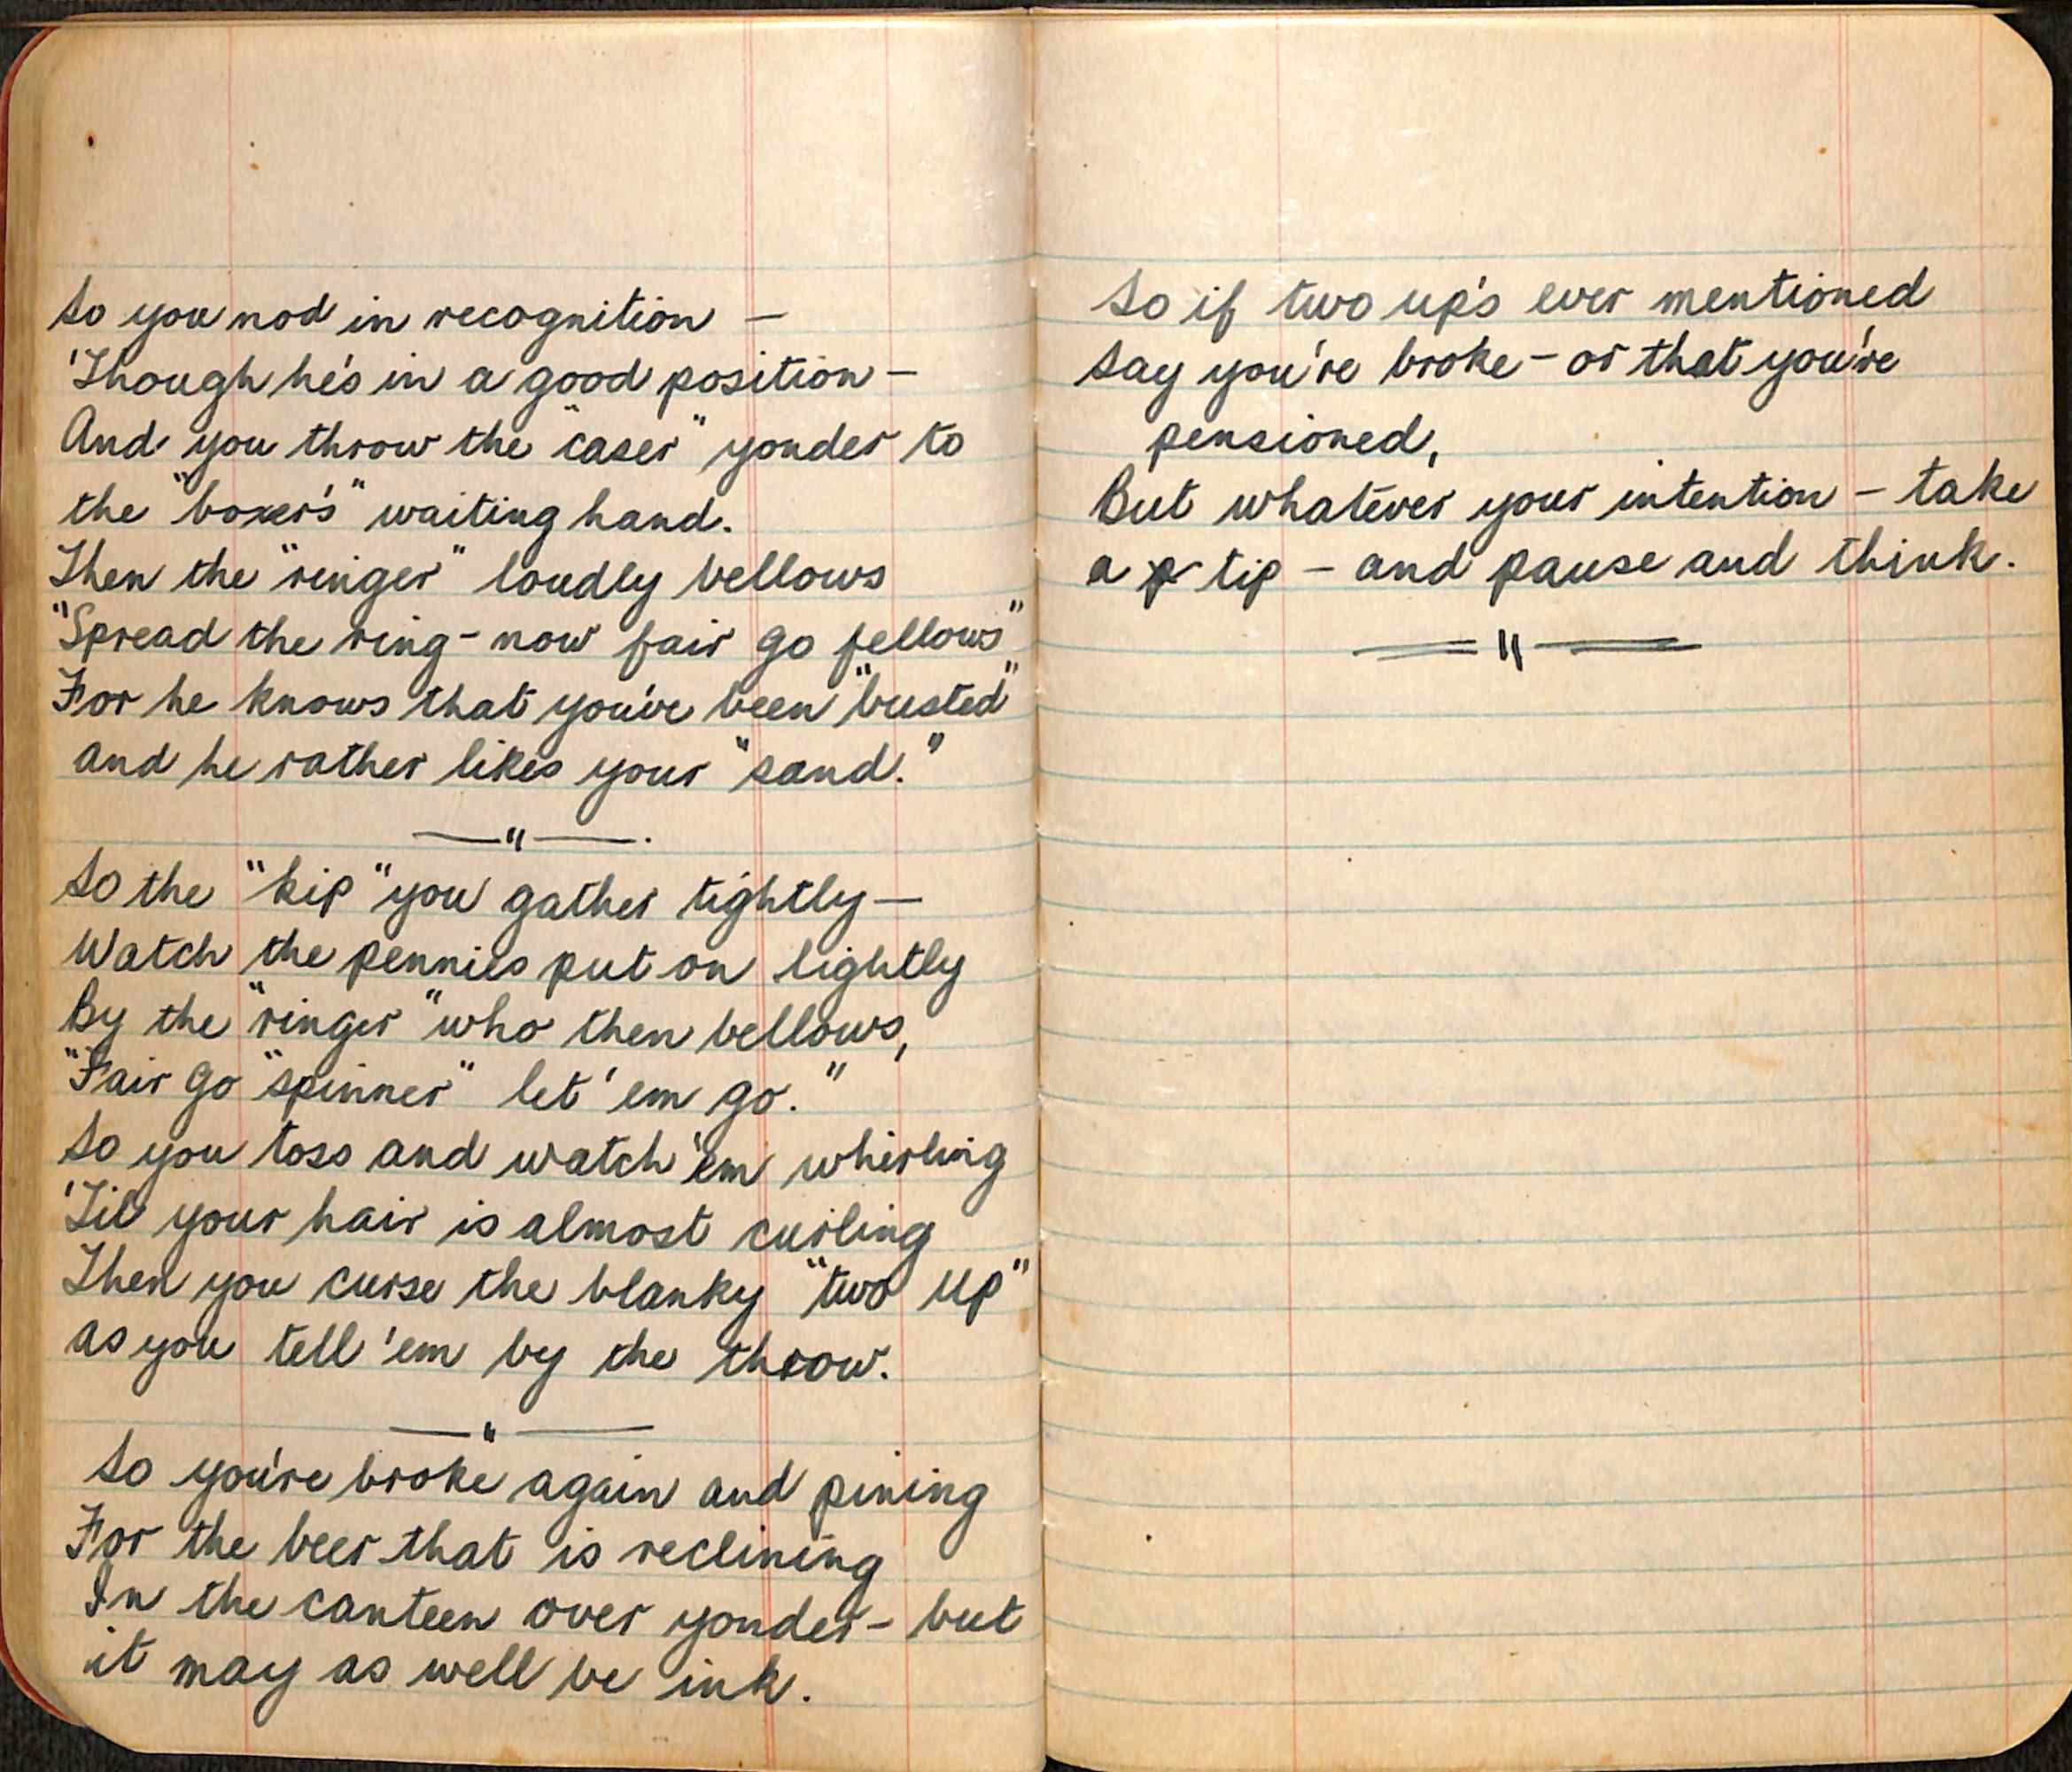 So you nod in recognition —
'Though he's in a good position —
And you throw the "caser" yonder to
the "boxer's" waiting hand.
Then the "ringer" loudly bellows
"Spread the ring - now fair go fellows"
For he knows that you've been "busted"
and he rather likes your "sand."
— " —
So the "kip" you gather tightly —
Watch the pennies put on lightly
By the "ringer" who then bellows,
"Fair go "spinner" let 'em go."
So you toss and watch 'em whirling
'Til your hair is almost curling
Then you curse the blanky "two up"
as you tell 'em by the throw.
— " —
So you're broke again and pining
For the beer that is reclining
In the canteen over yonder - but
it may as well be ink.
So if two up's ever mentioned
Say you're broke - or that you're
pensioned,
But whatever your intention - take
a p tip - and pause and think.
— " —